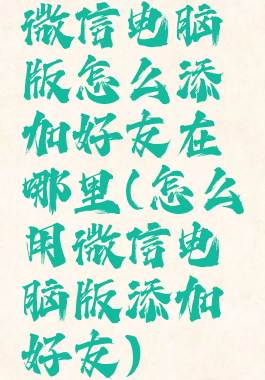 微信电脑
版怎么添
加好友在
哪里(怎么
用微信电
脑版添加
好友)